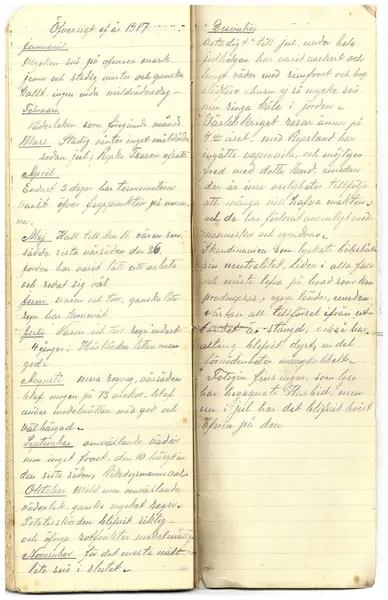 Öfversigt af år 1917
Januari.
Mycken snö på ofrusen mark
jemn och stadig vinter och ganska
kallt. ingen enda mildvädersdag
Februari
Väderleken som föregående månad
Mars. Stadig vinter inget mildväder
sedan jul; Ryske Tsaren afsatt
April
Endast 3 dagar har termometern
varit öfver fryspunkten på
Maj Kall till den 16. våren sen.
sådde sista vårsäden den 26
jorden har varit lätt att arbeta
och redat sig väl
Juni varm och torr, ganska lite
regn har kommit
Juli Varm och torr regn endast
4 gånger; Höskörden liten men
god
Augusti mera regng, vårsäden
blef mogen på 13 veckor. blef
under medelmåttan med god och
väl bärgad
September omväxlande väder
men inget frost. den 10 bärgt in
den sista säden, Riksdagsmannaval
Oktober Mild men omväxlande
väderlek ganska mycket regn.
Potatisskörden blifvit riklig
och öfriga rotfrukter medelmåttig
November för det mesta mildt
lite snö i slutet
December
ostadigt till jul, under hela
julhelgen har varit vackert och
lungt väder med rimfrost och
ej så mycket snö
men ringa käle i jorden
Världskriget rasar ännu på
4de året, med Ryssland har
ingåtts vapenvila och möjligen
fred med detta land, emedan
der är inre oroligheter tillföljd
att många vill hafva makten
och de har förlorat oerhördt med
menniskor och egendom
Skandinavien som lyckats bibehålla
sin neutralitet, lider i alla fall
och måste lefva på hvad som kan
produceras i egna länder, emedan
nästan all tillförsel ifrån
landet är stängd, också har
allting blifvit dyrt, en del
förnödenheter mångdubbelt
Fotogen fins ingen, som lser
har begagnats
nu i jul har det blifvit brist
äfven på den